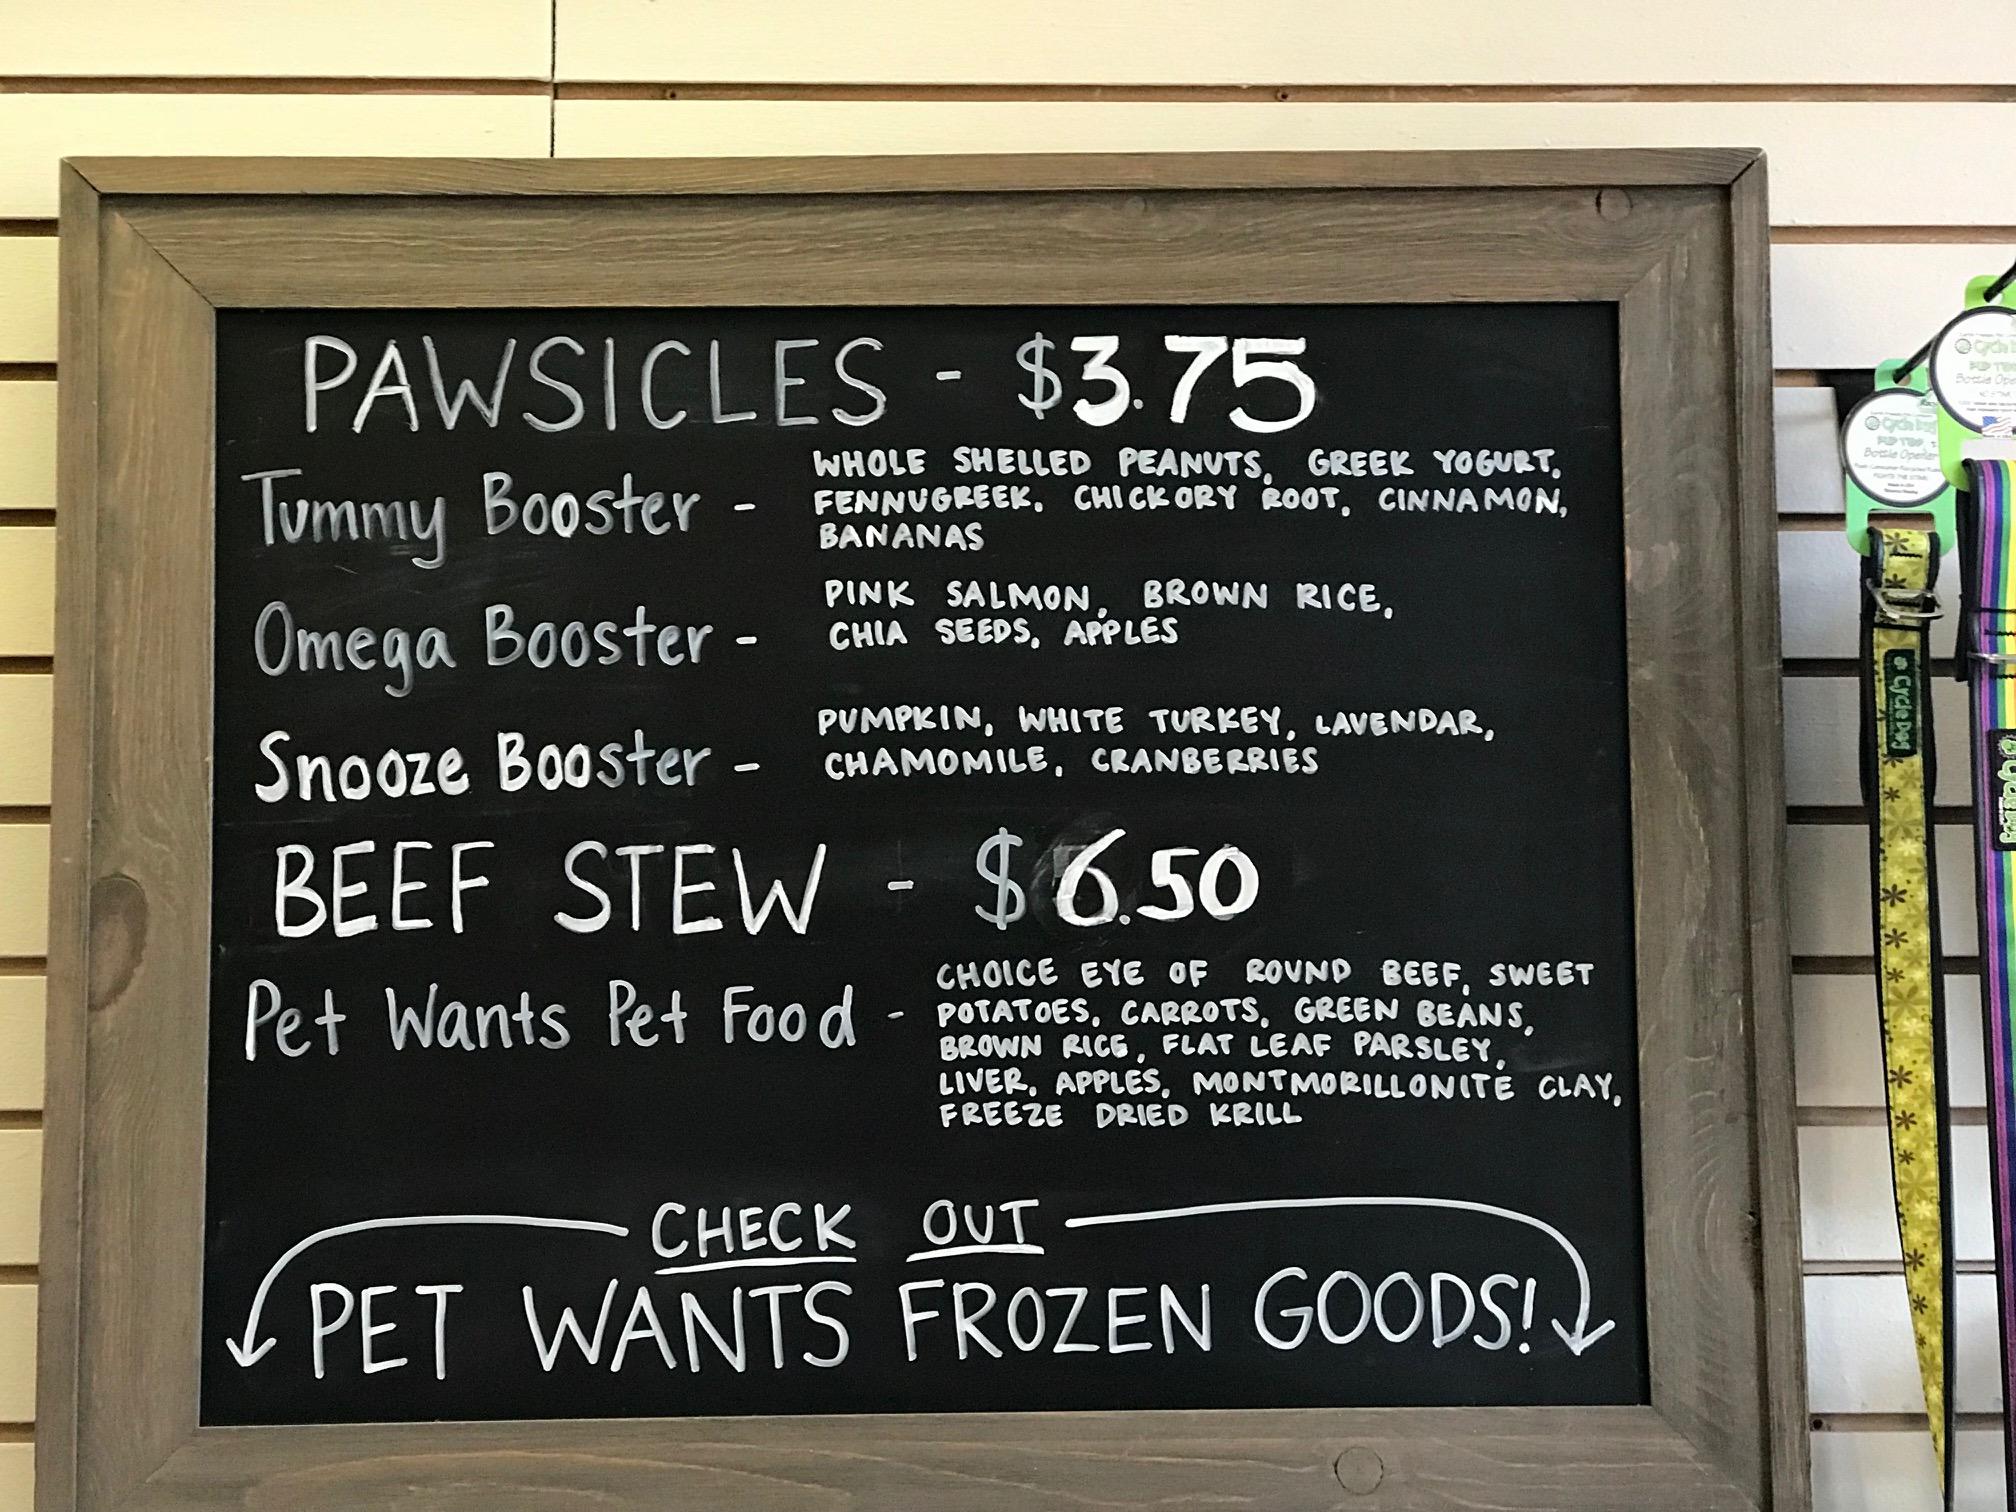 PAWSICLES - $3.75
Tummy Booster - WHOLE SHELLED PEANUTS, GREEK YOGURT,
FENNUGREEK, CHICKORY ROOT, CINNAMON,
BANANAS
Omega Booster - PINK SALMON, BROWN RICE,
CHIA SEEDS, APPLES
Snooze Booster - PUMPKIN, WHITE TURKEY, LAVENDAR,
CHAMOMILE, CRANBERRIES
BEEF STEW - $6.50
Pet Wants Pet Food - CHOICE EYE OF ROUND BEEF, SWEET
POTATOES, CARROTS, GREEN BEANS,
BROWN RICE, FLAT LEAF PARSLEY,
LIVER, APPLES, MONTMORILLONITE CLAY,
FREEZE DRIED KRILL
CHECK OUT
PET WANTS FROZEN GOODS!
Cycle Dog
FLIP TOP
Bottle Opener
Cycle Dog